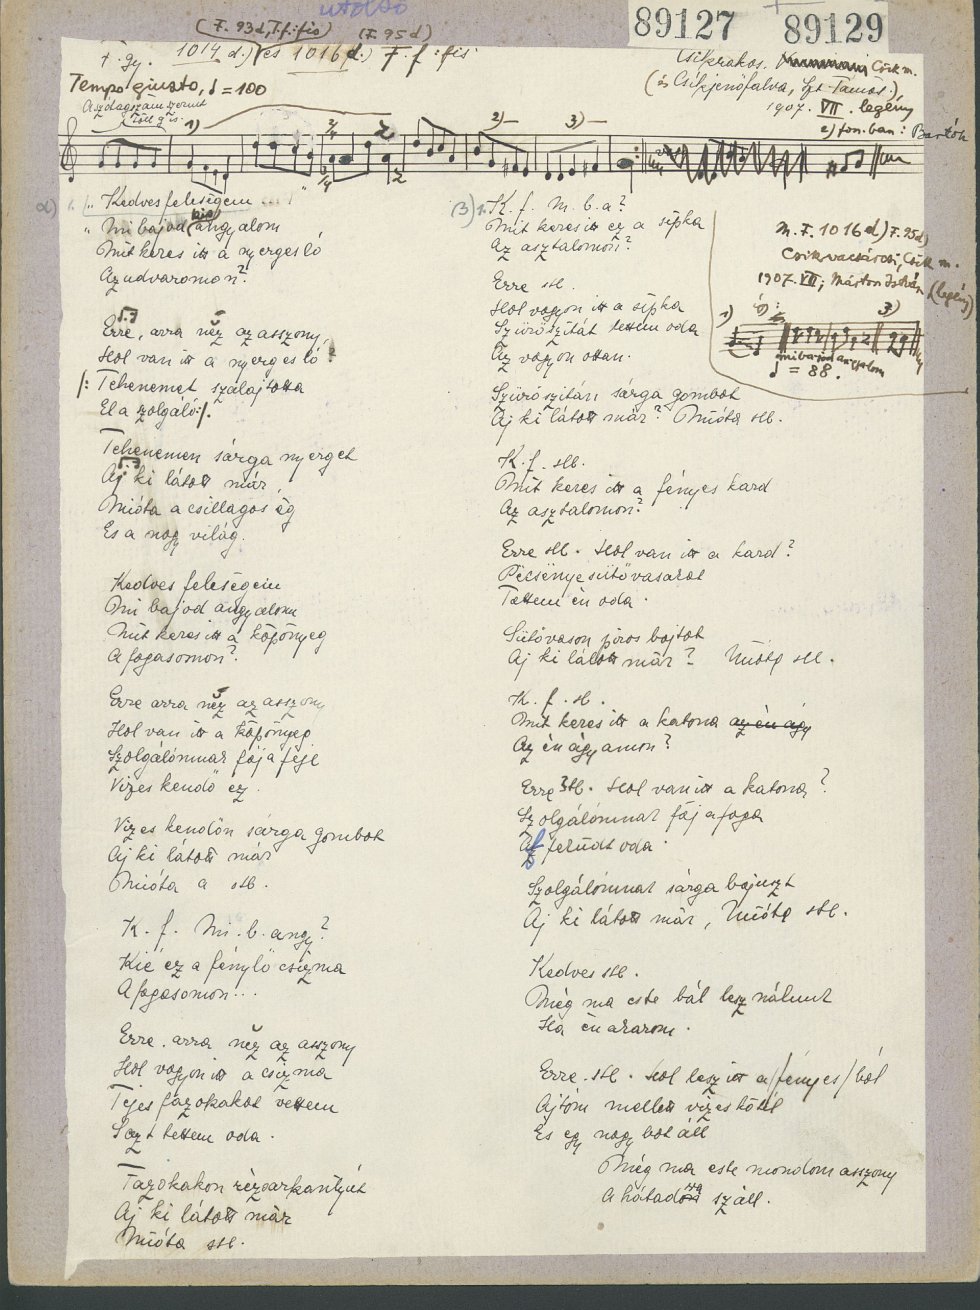 utolsó
89127 89129
(F. 93d, T.f: fis) (F. 95d)
1014 d.) és 1016 d.) F. f: fis
Csikrákos. Csík m.
(és Csikjenőfalva, Szt. Tamás.),
1907. VII. legény
2) fon.ban: Bartók
Tempo giusto, ♩ = 100
A szótagszám szerint
1) 2/4 2) 3)
α) 1. Kedves feleségem
Mi bajod angyalom
Mit keres itt a nyerges ló
Az udvaromon?
Erre, arra néz az asszony,
Hol van itt a nyerges ló?
/: Tehenemet szálajtotta
El a szolgáló :/.
Tehenemen sárga nyerget
Aj ki látott már
Mióta a csillagos ég
És a nagy világ.
Kedves feleségem
Mi bajod angyalom
Mit keres itt a köpönyeg
A fogasomon?
Erre arra néz az asszony
Hol van itt a köpönyeg
Szolgálómnak fáj a feje
Vizes kendő ez.
Vizes kendőn sárga gombot
Aj ki látott már
Mióta a stb.
K. f. Mi. b. angy?
Kié ez a fénylő csizma
A fogasomon...
Erre. arra néz az asszony
Hol vagyon itt a csizma
Tejes fazokakot vettem
Szt tettem oda.
Fazokakon rézsarkantyút
Aj ki látott már
Mióta stb.
β) 1. K. f. M. b. a?
Mit keres itt ez a sipka
Az asztalomon?
Erre stb.
Hol vagyon itt a sipka
Szürőszitát tettem oda
Az vagyon ottan.
Szürőszitán sárga gombot
Aj ki látott már? Mióta stb.
K. f. stb.
Mit keres itt a fényes kard
Az asztalomon?
Erre stb. Hol van itt a kard?
Pecsenyesütővasakot
Tettem én oda.
Sütővason piros bojtot
Aj ki látott már? Mióta stb.
K. f. st.
Mit keres itt a katona az én ágy
Az én ágyamon?
Erre? stb. Hol van itt a katona?
Szolgálómnak fáj a foga
Az feküdt oda.
Szolgálómnak sárga bajuszt
Aj ki látott már, Mióta stb.
Kedves stb.
Még ma este bál lesz nálunk
Ha én akarom.
Erre. stb. Hol lesz itt a /fényes/ bál
Ajtóm mellett vizes kötél
És egy nagy bot áll
Még ma este mondom asszony
A hátadra száll.
M. F. 1016 d) F. 95d)
Csikvacsárcsi, Csík m.
1907. VII; Márton István (legény)
1) 3)
mi bajod angyalom
♩ = 88.